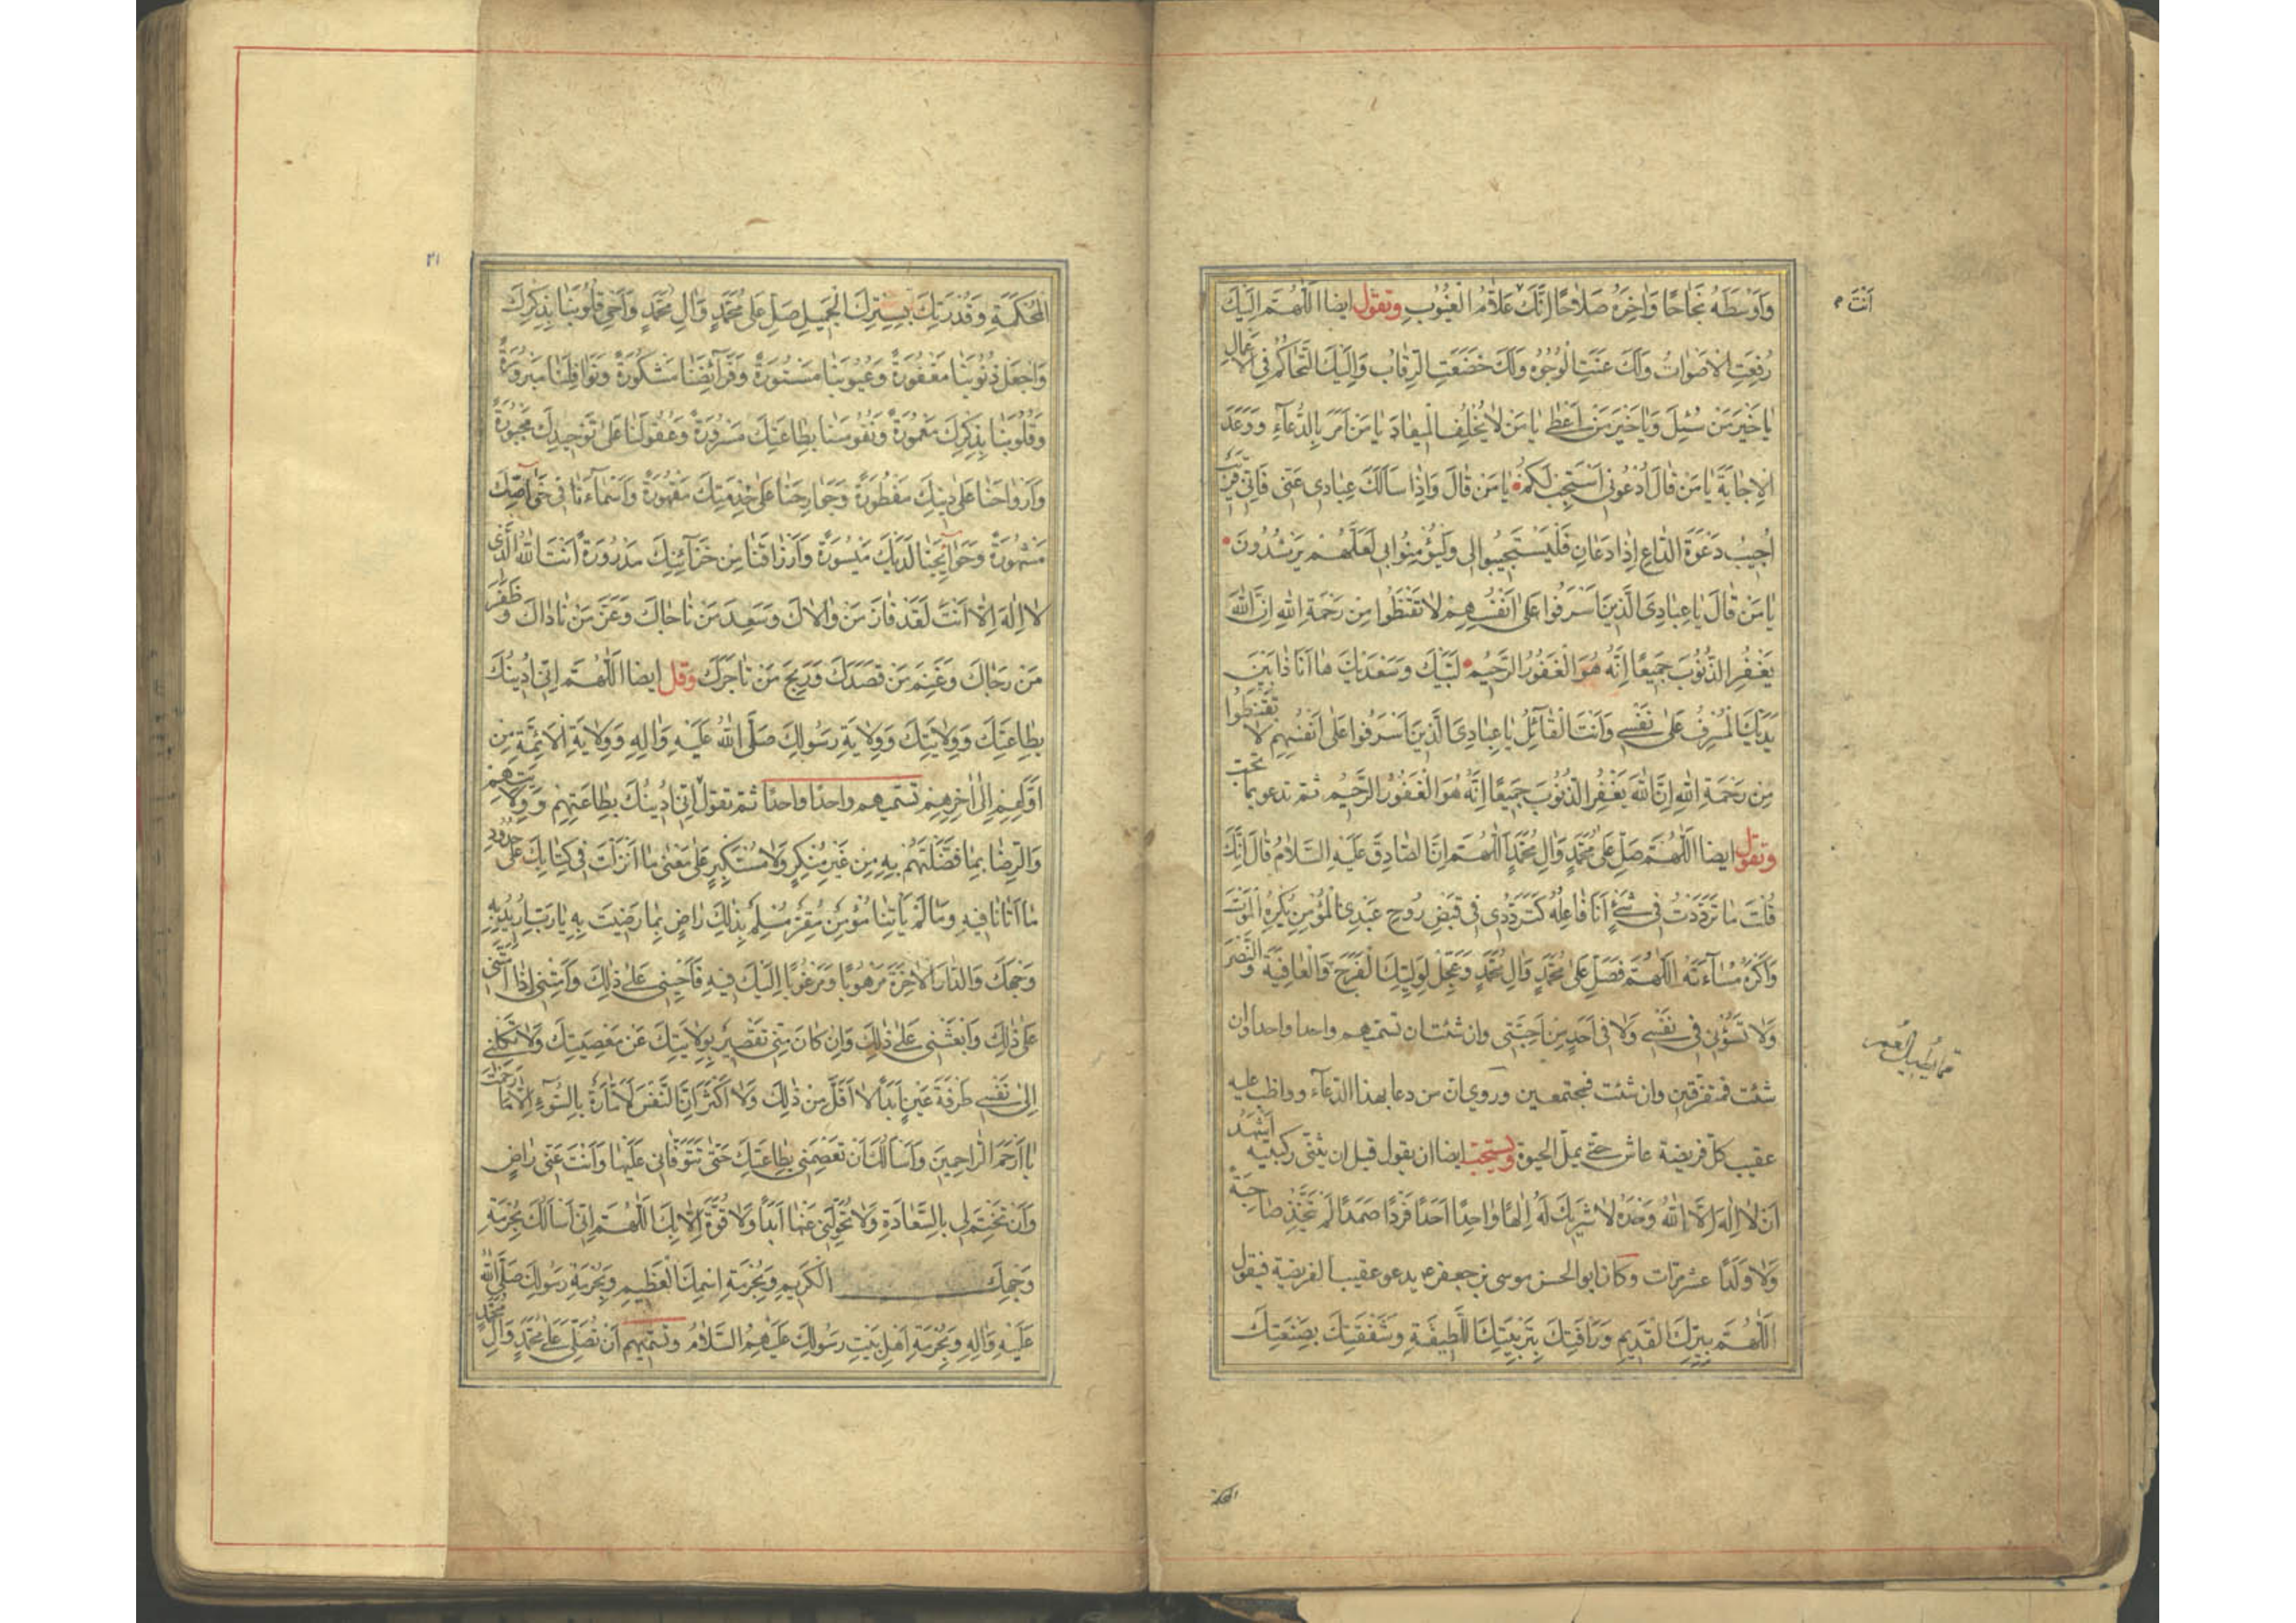 وَاَوْسَطَهُ نَجَاحًا وَاٰخِرَهُ صَلَاحًا اِنَّكَ عَلَّامُ الْغُيُوبِ وتقول ايضا اَللّٰهُمَّ اِلَيْكَ
اَنْتَ
رُفِعَتِ الْاَصْوَاتُ وَلَكَ عَنَتِ الْوُجُوهُ وَلَكَ خَضَعَتِ الرِّقَابُ وَاِلَيْكَ التَّحَاكُمُ فِي الْاَعْمَالِ
يَا خَيْرَ مَنْ سُئِلَ وَيَا خَيْرَ مَنْ اَعْطٰى يَا مَنْ لَا يُخْلِفُ الْمِيعَادَ يَا مَنْ اَمَرَ بِالدُّعَاءِ وَوَعَدَ
الْاِجَابَةَ يَا مَنْ قَالَ اُدْعُونِي اَسْتَجِبْ لَكُمْ يَا مَنْ قَالَ وَاِذَا سَاَلَكَ عِبَادِي عَنّي فَاِنّي قَرِيبٌ
اُجِيبُ دَعْوَةَ الدَّاعِ اِذَا دَعَانِ فَلْيَسْتَجِيبُوا لِي وَلْيُؤْمِنُوا بِي لَعَلَّهُمْ يَرْشُدُونَ
يَا مَنْ قَالَ يَا عِبَادِيَ الَّذِينَ اَسْرَفُوا عَلٰى اَنْفُسِهِمْ لَا تَقْنَطُوا مِنْ رَحْمَةِ اللهِ اِنَّ اللهَ
يَغْفِرُ الذُّنُوبَ جَمِيعًا اِنَّهُ هُوَ الْغَفُورُ الرَّحِيمُ لَبَّيْكَ وَسَعْدَيْكَ هَا اَنَا ذَا بَيْنَ
يَدَيْكَ الْمُسْرِفُ عَلٰى نَفْسِي وَاَنْتَ الْقَائِلُ يَا عِبَادِيَ الَّذِينَ اَسْرَفُوا عَلٰى اَنْفُسِهِمْ لَا تَقْنَطُوا
مِنْ رَحْمَةِ اللهِ اِنَّ اللهَ يَغْفِرُ الذُّنُوبَ جَمِيعًا اِنَّهُ هُوَ الْغَفُورُ الرَّحِيمُ ثم تدعو بما تحب
وتقول ايضا اَللّٰهُمَّ صَلِّ عَلٰى مُحَمَّدٍ وَاٰلِ مُحَمَّدٍ اَللّٰهُمَّ اِنَّ الصَّادِقَ عَلَيْهِ السَّلَامُ قَالَ اِنَّكَ
قُلْتَ مَا تَرَدَّدْتُ فِي شَيْءٍ اَنَا فَاعِلُهُ كَتَرَدُّدِي فِي قَبْضِ رُوحِ عَبْدِيَ الْمُؤْمِنِ يَكْرَهُ الْمَوْتَ
وَاَكْرَهُ مَسَاءَتَهُ اَللّٰهُمَّ فَصَلِّ عَلٰى مُحَمَّدٍ وَاٰلِ مُحَمَّدٍ وَعَجِّلْ لِوَلِيِّكَ الْفَرَجَ وَالْعَافِيَةَ وَالنَّصْرَ
وَلَا تَسُؤْنِي فِي نَفْسِي وَلَا فِي اَحَدٍ مِنْ اَحِبَّتِي وان شئت ان تسميهم واحدا واحدا وان
شئت فمتفرقين وان شئت فمجتمعين وروي ان من دعا بهذا الدعاء وواظب عليه
عقيب كل فريضة عاش حتى يمل الحيوة ويستحب ايضا ان يقول قبل ان يثني ركبتيه اَشْهَدُ
اَنْ لَا اِلٰهَ اِلَّا اللهُ وَحْدَهُ لَا شَرِيكَ لَهُ اِلٰهًا وَاحِدًا اَحَدًا فَرْدًا صَمَدًا لَمْ يَتَّخِذْ صَاحِبَةً
وَلَا وَلَدًا عشر مرات وكان ابو الحسن موسى بن جعفر ع يدعو عقيب الفريضة فيقول
اَللّٰهُمَّ بِبِرِّكَ الْقَدِيمِ وَرَأْفَتِكَ بِتَرْبِيَتِكَ اللَّطِيفَةِ وَشَفَقَتِكَ بِصَنْعَتِكَ
المحكمة
٢١
الْمُحْكَمَةِ وَقُدْرَتِكَ بِسِتْرِكَ الْجَمِيلِ صَلِّ عَلٰى مُحَمَّدٍ وَاٰلِ مُحَمَّدٍ وَاَحْيِ قُلُوبَنَا بِذِكْرِكَ
وَاجْعَلْ ذُنُوبَنَا مَغْفُورَةً وَعُيُوبَنَا مَسْتُورَةً وَفَرَائِضَنَا مَشْكُورَةً وَنَوَافِلَنَا مَبْرُورَةً
وَقُلُوبَنَا بِذِكْرِكَ مَعْمُورَةً وَنُفُوسَنَا بِطَاعَتِكَ مَسْرُورَةً وَعُقُولَنَا عَلٰى تَوْحِيدِكَ مَجْبُورَةً
وَاَرْوَاحَنَا عَلٰى دِينِكَ مَفْطُورَةً وَجَوَارِحَنَا عَلٰى خِدْمَتِكَ مَقْهُورَةً وَاَسْمَاءَنَا فِي خَوَاصِّكَ
مَشْهُورَةً وَحَوَائِجَنَا لَدَيْكَ مَيْسُورَةً وَاَرْزَاقَنَا مِنْ خَزَائِنِكَ مَدْرُورَةً اَنْتَ اللهُ الَّذِي
لَا اِلٰهَ اِلَّا اَنْتَ لَقَدْ فَازَ مَنْ وَالَاكَ وَسَعِدَ مَنْ نَاجَاكَ وَعَزَّ مَنْ نَادَاكَ وَظَفِرَ
مَنْ رَجَاكَ وَغَنِمَ مَنْ قَصَدَكَ وَرَبِحَ مَنْ تَاجَرَكَ وقل ايضا اَللّٰهُمَّ اِنّي اَدِينُكَ
بِطَاعَتِكَ وَوِلَايَتِكَ وَوِلَايَةِ رَسُولِكَ صَلَّى اللهُ عَلَيْهِ وَاٰلِهِ وَوِلَايَةِ الْاَئِمَّةِ مِنْ
اَوَّلِهِمْ اِلٰى اٰخِرِهِمْ تسميهم واحدا واحدا ثم تقول اِنّي اَدِينُكَ بِطَاعَتِهِمْ وَوِلَايَتِهِمْ
وَالرِّضَا بِمَا فَضَّلْتَهُمْ بِهِ مِنْ غَيْرِ مُنْكِرٍ وَلَا مُسْتَكْبِرٍ عَلٰى مَعْنٰى مَا اَنْزَلْتَ فِي كِتَابِكَ عَلٰى حُدُودِ
مَا اَتَانَا فِيهِ وَمَا لَمْ يَأْتِنَا مُؤْمِنٌ مُقِرٌّ مُسْلِمٌ بِذٰلِكَ رَاضٍ بِمَا رَضِيتَ بِهِ يَا رَبِّ اُرِيدُ بِهِ
وَجْهَكَ وَالدَّارَ الْاٰخِرَةَ مَرْهُوبًا وَمَرْغُوبًا اِلَيْكَ فِيهِ فَاَحْيِنِي عَلٰى ذٰلِكَ وَاَمِتْنِي اِذَا اَمَتَّنِي
عَلٰى ذٰلِكَ وَابْعَثْنِي عَلٰى ذٰلِكَ وَاِنْ كَانَ مِنّي تَقْصِيرٌ بِوِلَايَتِكَ عَنْ مَعْصِيَتِكَ وَلَا تَكِلْنِي
اِلٰى نَفْسِي طَرْفَةَ عَيْنٍ اَبَدًا لَا اَقَلَّ مِنْ ذٰلِكَ وَلَا اَكْثَرَ اِنَّ النَّفْسَ لَاَمَّارَةٌ بِالسُّوءِ اِلَّا مَا رَحِمْتَ
يَا اَرْحَمَ الرَّاحِمِينَ وَاَسْاَلُكَ اَنْ تَعْصِمَنِي بِطَاعَتِكَ حَتّٰى تَتَوَفَّانِي عَلَيْهَا وَاَنْتَ عَنّي رَاضٍ
وَاَنْ تَخْتِمَ لِي بِالسَّعَادَةِ وَلَا تُحَوِّلَنِي عَنْهَا اَبَدًا وَلَا قُوَّةَ اِلَّا بِكَ اَللّٰهُمَّ اِنّي اَسْاَلُكَ بِحُرْمَةِ
وَجْهِكَ الْكَرِيمِ وَبِحُرْمَةِ اسْمِكَ الْعَظِيمِ وَبِحُرْمَةِ رَسُولِكَ صَلَّى اللهُ
عَلَيْهِ وَاٰلِهِ وَبِحُرْمَةِ اَهْلِ بَيْتِ رَسُولِكَ عَلَيْهِمُ السَّلَامُ وتسميهم اَنْ تُصَلِّيَ عَلٰى مُحَمَّدٍ وَاٰلِ مُحَمَّدٍ